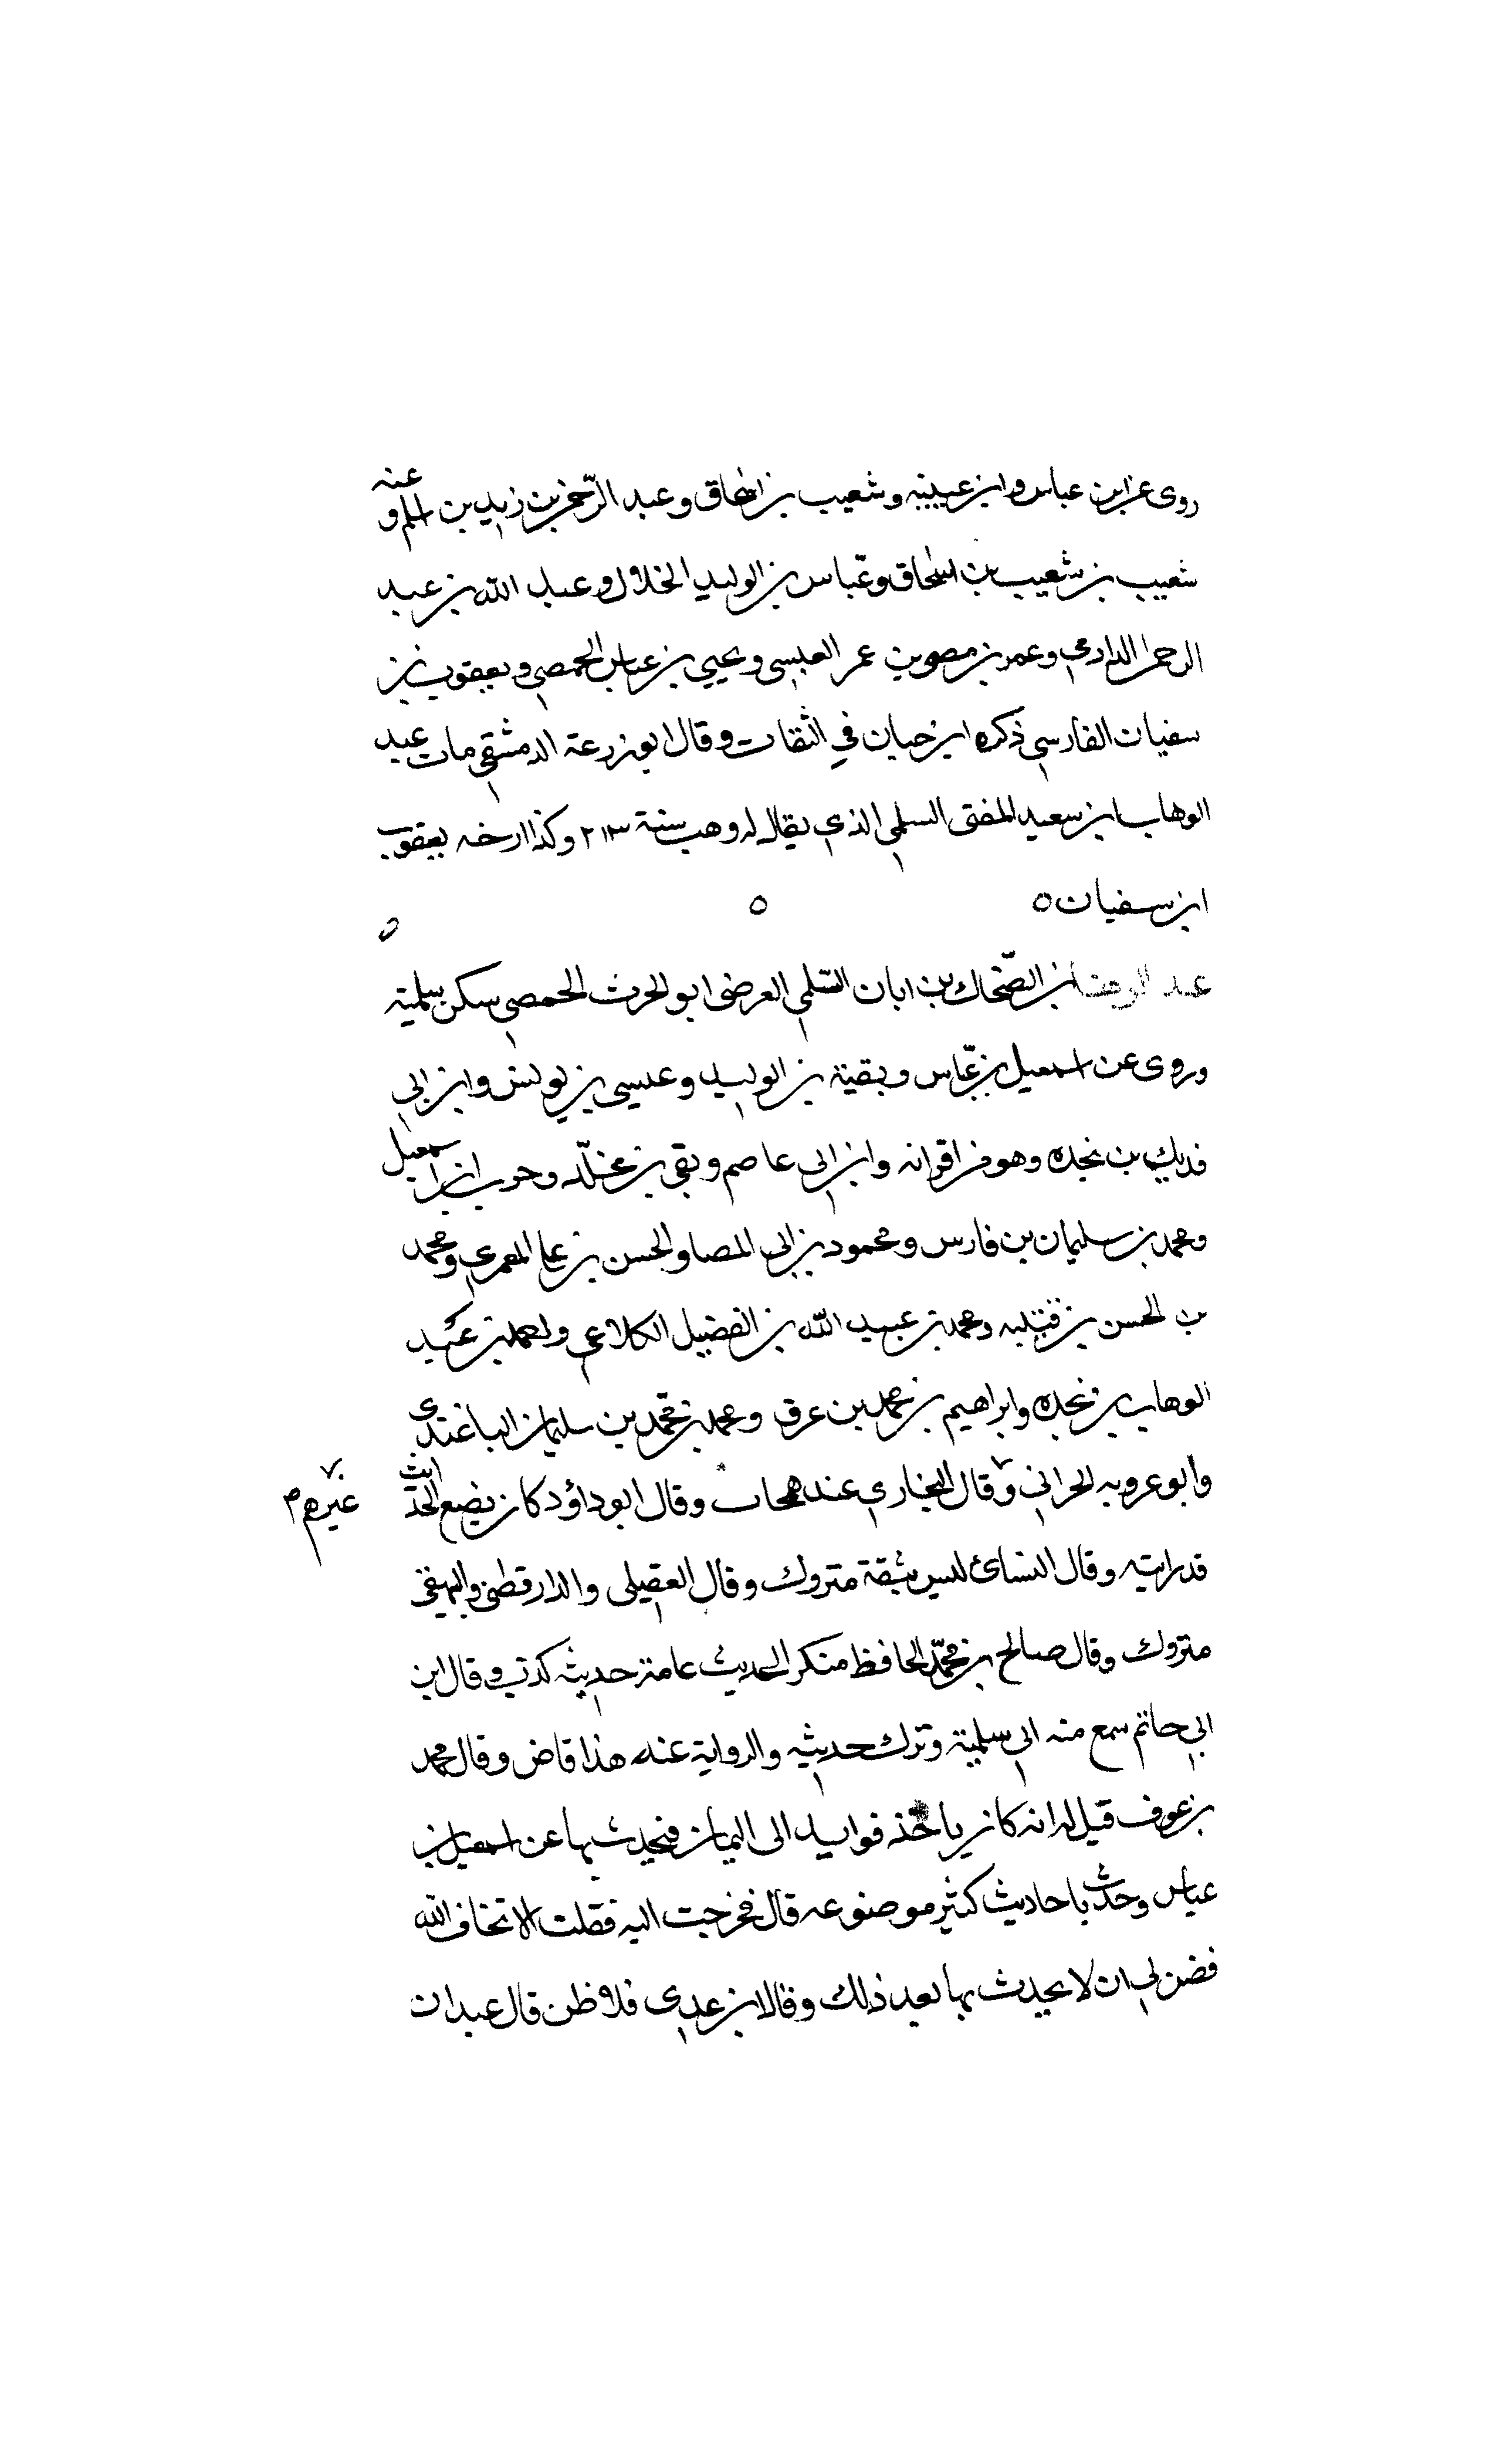 روى عن ابن عباس وابن عيينه وشعيب بن اسحاق وعبد الرحمن بن زيد بن اسلم وعنه
شعيب بن شعيب بن اسحاق وعباس بن الوليد الخلال وعبد الله بن عبد
الرحمن الدارمي وعمر بن مصر بن عمر العبسي ويحيي بن عباس الحمصي ويعقوب بن
سفيان الفارسي ذكره ابن حبان في الثقات وقال ابو زرعة الدمشقي مات عبد
الوهاب ابن سعيد المفتى السلمي الذي يقال له وهب سنة ٢١٣ وكذا ارخه يعقوب
ابن سفيان ه ه ه
عبد الوهاب بن الضحاك بن ابان السلمي العرضى ابو الحرث الحمصي سكن سلمية
وروى عن اسمعيل بن عياس وبقية بن الوليد وعيسى بن يونس وابن ابي
فديك بن نجده وهو من اقرانه وابن ابي عاصم وبقي بن مخلد وحرب ابن اسمعيل
ومحمد بن سليمان بن فارس ومحمود بن ابي المصا والحسن بن علي المعمري ومحمد
بن الحسن بن قتيبه ومحمد بن عبيد الله بن الفضيل الكلاعي واحمد بن عبد
الوهاب بن نجده وابراهيم بن محمد بن عرق ومحمد بن محمد بن سليمان الباغندى
وابو عروبه الحراني وقال البخاري عنده عجائب وقال ابوداؤد كان يضع الحديث
غيرهم م
قد رايته وقال النسائ ليس بثقة متروك وقال العقيلي والدارقطنى والبيهقى
متروك وقال صالح بن محمد الحافظ منكر الحديث عامة حديثه كذب وقال ابن
ابي حاتم سمع منه ابي سلمية وترك حديثه والرواية عنه هذا قاض وقال محمد
بن عوف قيل له انه كان ياخذ فوايد ابى اليمان فيحدث بها عن اسمعيل بن
عياس وحدث باحاديث كثير موضوعه قال فخرجت اليه فقلت الا تخاف الله
فضمن لي ان لا يحدث بها بعد ذلك وقال ابن عدي قال عبدان